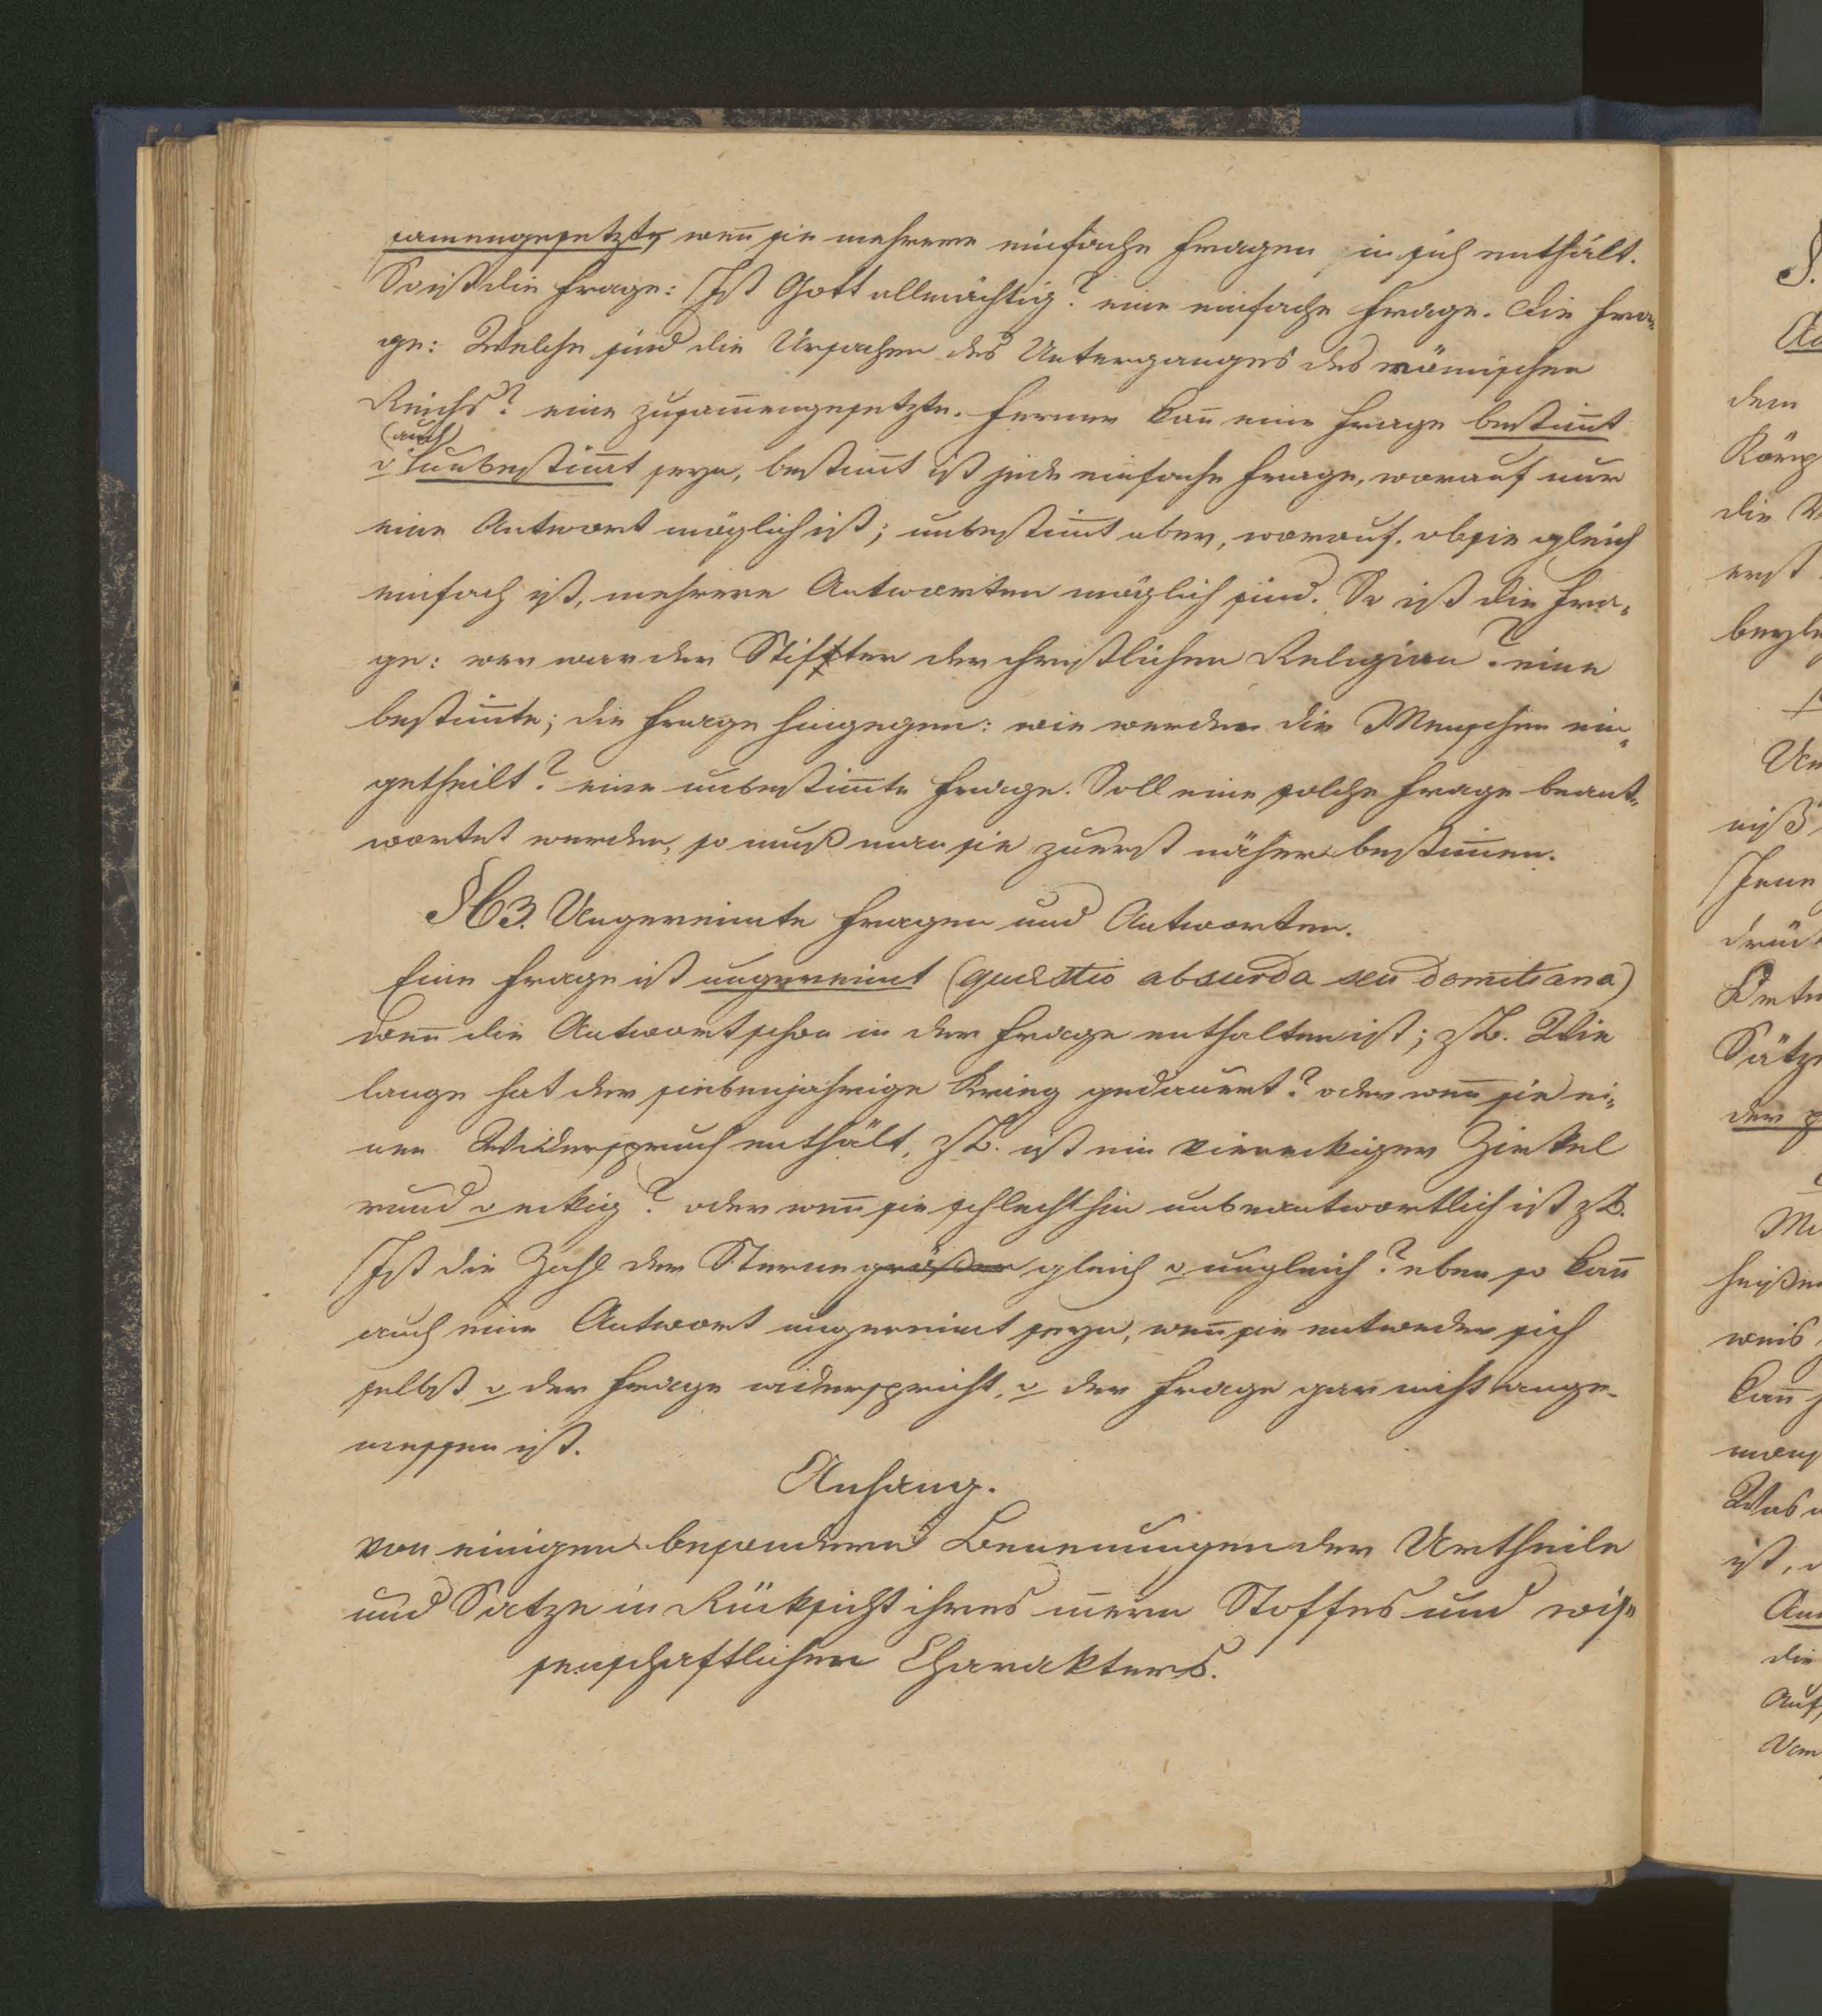 sam̄engesetzte, wen̄ sie mehrere einfache Fragen in sich enthält.
So ist die Frage: Ist Gott allmächtig? eine einfache Frage. Die Fra-
ge: Welche sind die Ursachen des Unterganges des römischen
Reichs? eine zusam̄engesetzte. Ferner kan̄ eine Frage bestim̄t
(auch)
o unbestim̄t seyn, bestim̄t ist jede einfache Frage, worauf nur
eine Antwort möglich ist; unbestim̄t aber, worauf, ob sie gleich
einfach ist, mehrere Antworten möglich sind. So ist die Fra-
ge: wer war der Stifter der christlichen Religion? eine
bestim̄te; die Frage hingegen: wie werden die Menschen ein-
getheilt? eine unbestim̄te Frage. Soll eine solche Frage beant-
wortet werden, so muß man sie zuerst näher bestim̄en.
§63. Ungereimte Fragen und Antworten.
Eine Frage ist ungereimt (quæstio absurda seu domitiana)
wen̄ die Antwort schon in der Frage enthalten ist; z.B. Wie
lange hat der siebenjahrige Krieg gedauert? oder wen̄ sie ei-
nen Widerspruch enthält, z.B. ist ein viereckiger Zirkel
rund o eckig? oder wen̄ sie schlechthin unbeantwortlich ist z.B.
Ist die Zahl der Sterne größer gleich o ungleich? eben so kan̄
auch eine Antwort ungereimt seyn, wen̄ sie entweder sich
selbst o der Frage widerspricht, o der Frage gar nicht ange-
messen ist.
Anhang.
von einigen besondern Benen̄ungen der Urtheile
und Satze in Rücksicht ihres in̄ern Stoffes und wis-
senschaftlichen Charakters.
§.
dem
Körp
die
erst
niß
Jene
drück
Sätze
der
weis
kan̄
Was
ist,
die